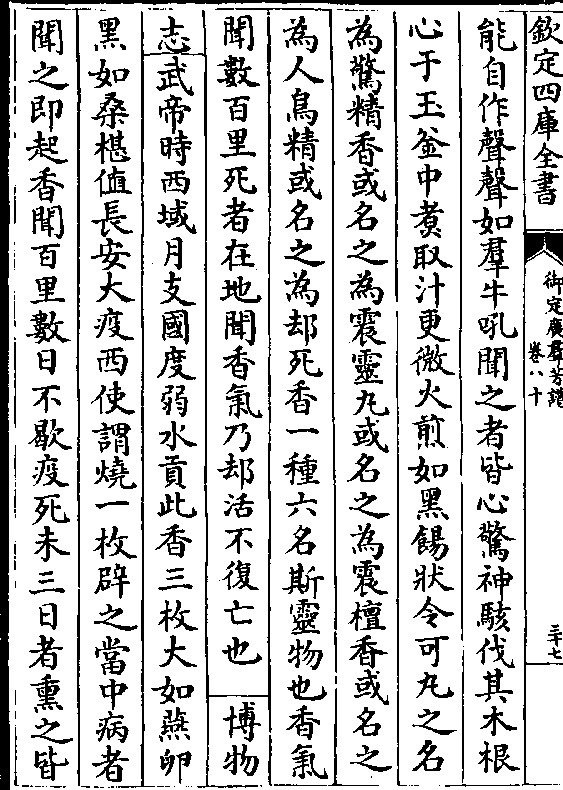 欽定四庫全書
御定廣羣芳譜
卷八十
三十七
能自作聲聲如羣牛吼聞之者皆心驚神駭伐其木根
心于玉釜中煑取汁更微火煎如黑餳狀令可丸之名
為驚精香或名之為震靈丸或名之為震檀香或名之
為人鳥精或名之為却死香一種六名斯靈物也香氣
聞數百里死者在地聞香氣乃却活不復亡也 博物
志武帝時西域月支國度弱水貢此香三枚大如燕卵
黑如桑椹值長安大疫西使謂燒一枚辟之當中病者
聞之即起香聞百里數日不歇疫死未三日者熏之皆